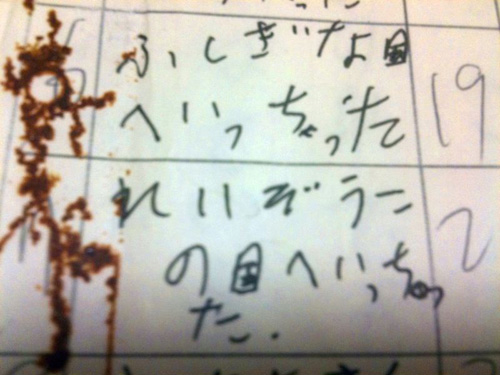 ふしぎな国
へいっちゃった
19
れいぞうこ
の国へいっちゃっ
た.
2